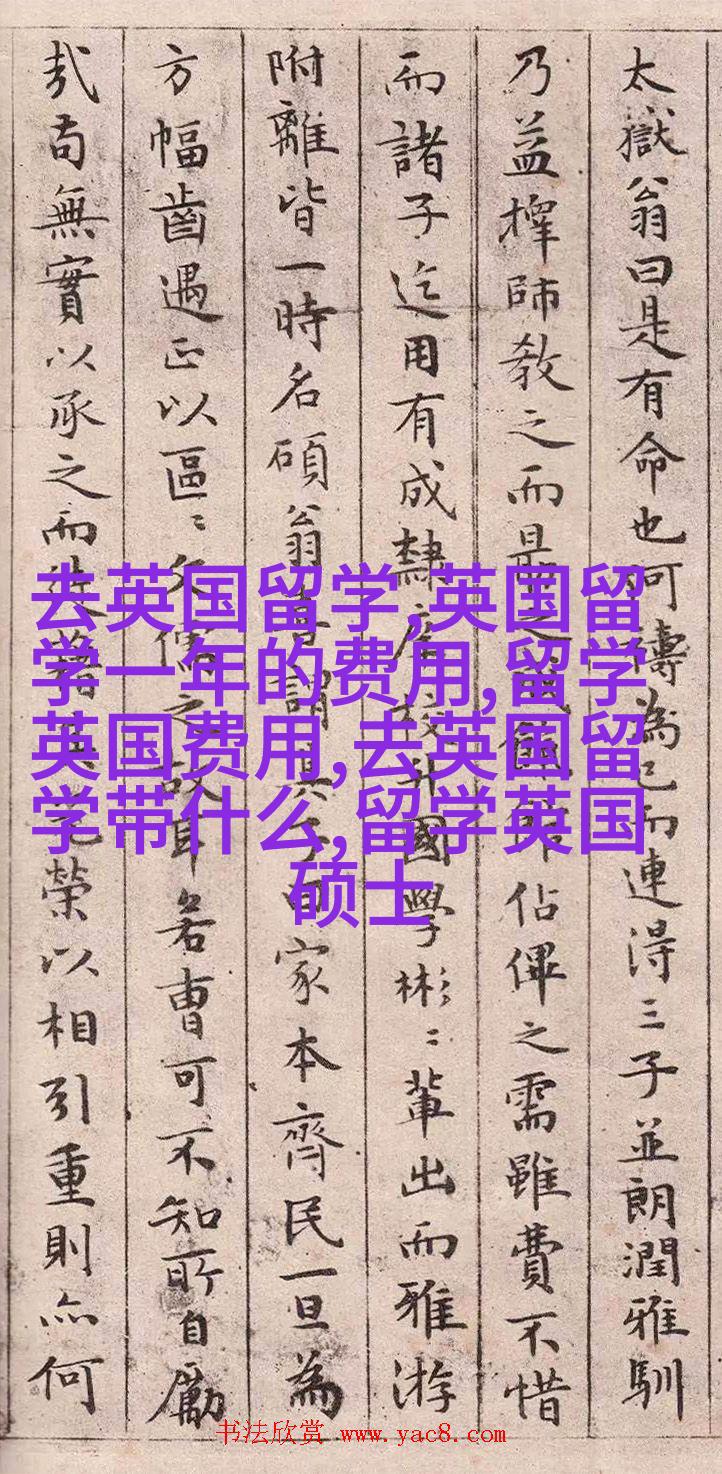 太嶽翁曰是有命也可為已而連得三子並朗潤雅馴
乃益擇師教之而佔俾之需雖費不惜
而諸子迄用有成隸升國學彬〻輩出而雅游
附離皆一時名碩翁謂其子曰家本齊民一旦為
方幅齒遇正以區〻文儒之故耳若曹可不知所自勵
哉苟無實以承之而榮以相引重則亦何
去英国留学,英国留
学一年的费用,留学
英国费用,去英国留
学带什么,留学英国
硕士
书法欣赏 www.yac8.com